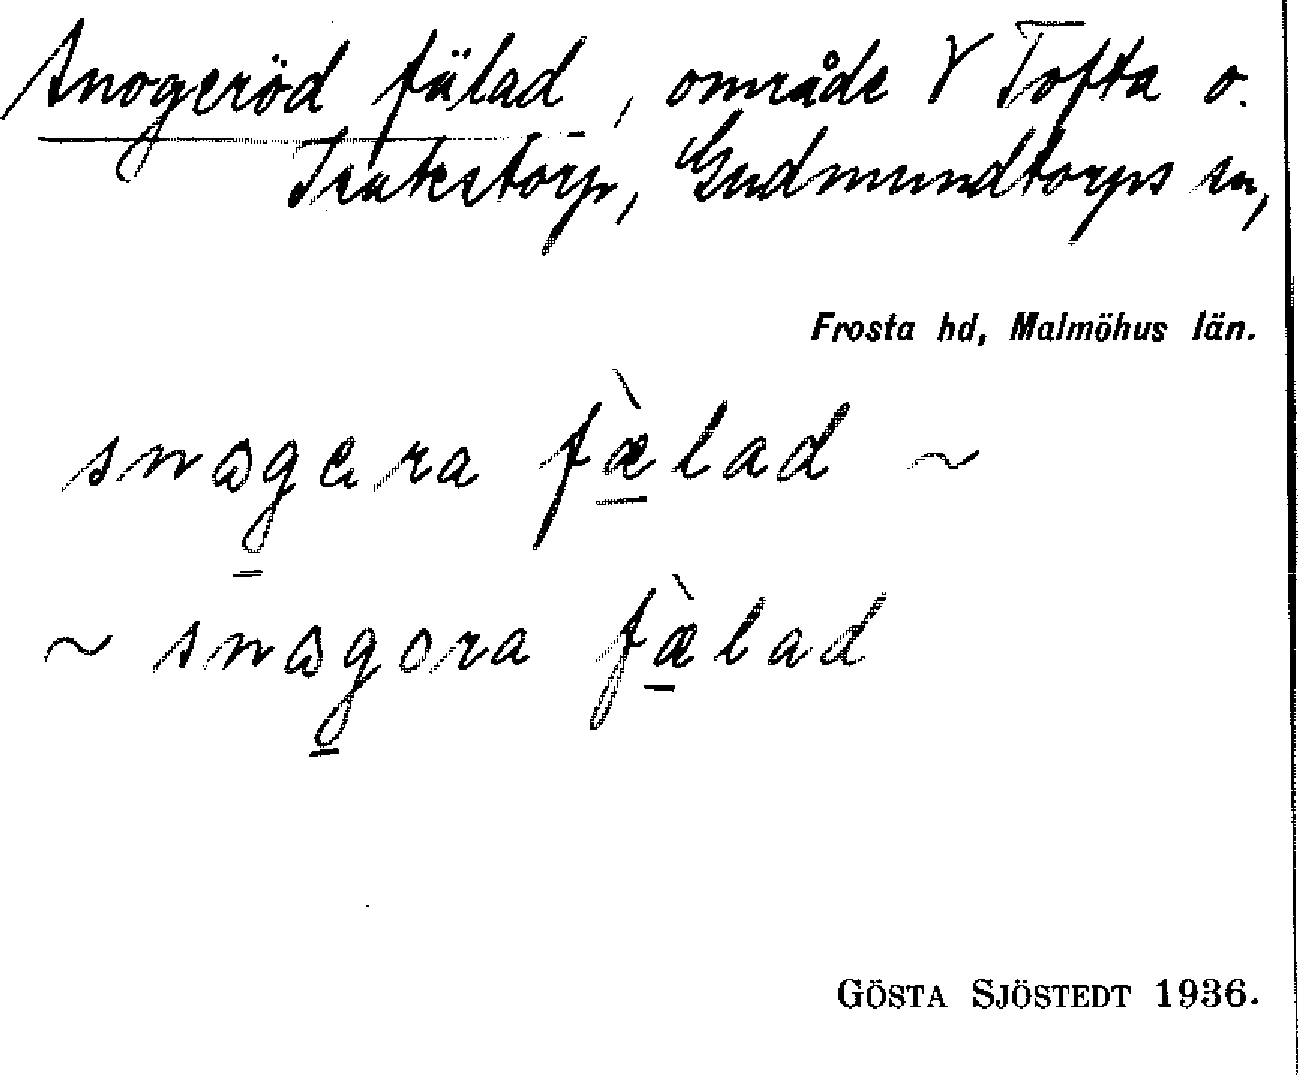 Snogeröd fälad, område V Tofta o.
Teatetorp, Gudmundtorps sn,
Frosta hd, Malmöhus län.
snɷgera fæ̀lad ~
~ snɷgora fæ̀lad
GÖSTA SJÖSTEDT 1936.